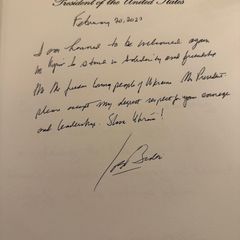 President of the United States
February 20, 2023
I am honored to be welcomed again
in Kyiv to stand in solidarity and friendship
with the freedom loving people of Ukraine. Mr. President
please accept my deepest respect for your courage
and leadership. Slava Ukraini!
Joe Biden